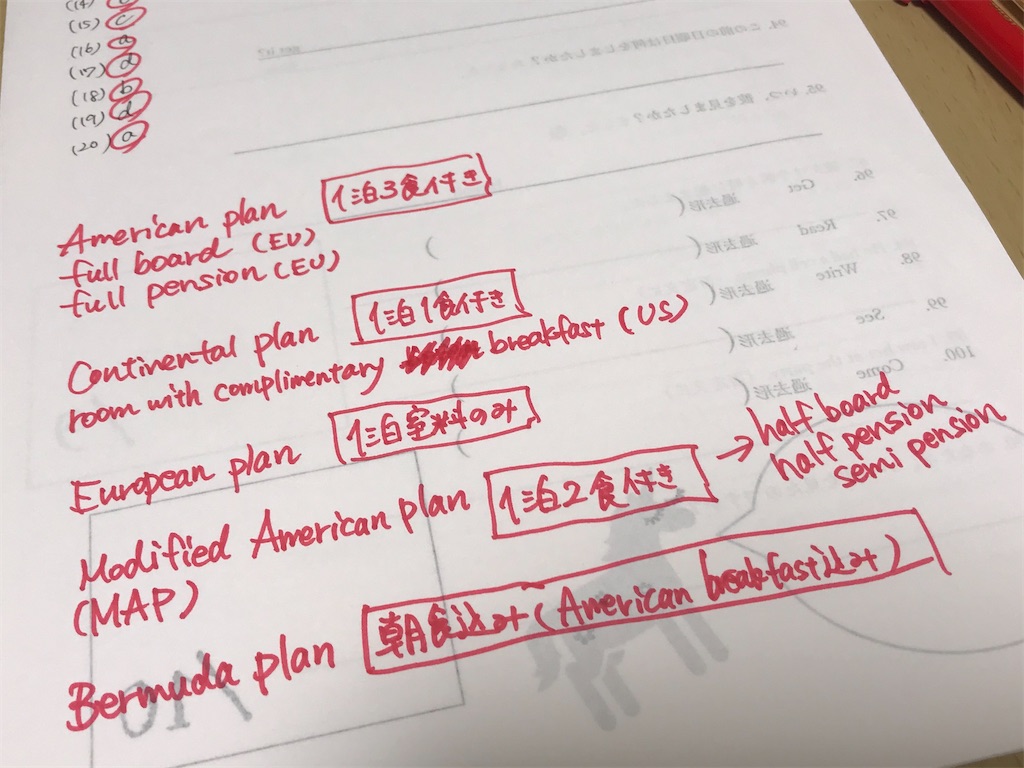 (15) c
(16) a
(17) d
(18) b
(19) d
(20) a
94. この前の日曜日は何をしましたか?
95. いつ、彼を見ましたか?
96. Get 過去形 (
97. Read 過去形 (
98. Write 過去形 (
99. See 過去形 (
100. Come 過去形 (
American plan 1泊3食付き
full board (EU)
full pension (EU)
Continental plan 1泊1食付き
room with complimentary breakfast (US)
European plan 1泊室料のみ
Modified American plan 1泊2食付き → half board
(MAP) half pension
semi pension
Bermuda plan 朝食込み (American breakfast込み)
/10